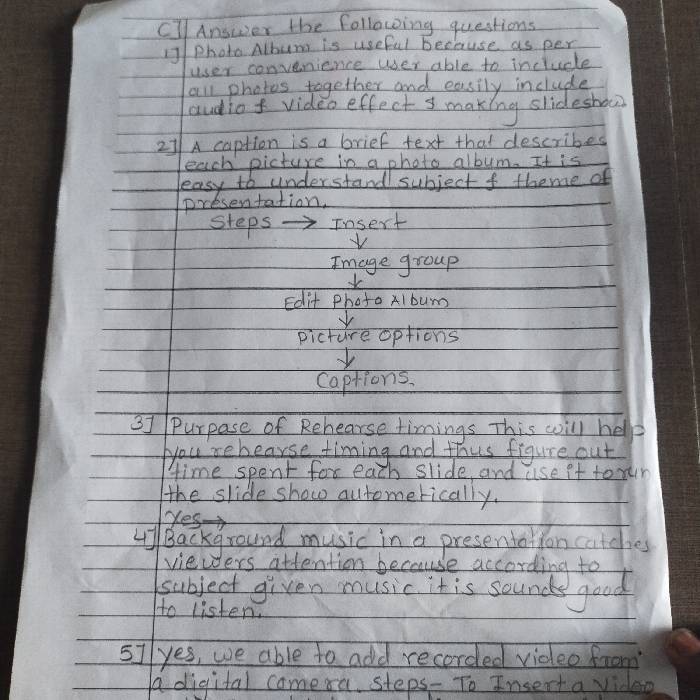 C] Answer the following questions
1] Photo Album is useful because as per
user convenience user able to include
all photos together and easily include
audio & video effect & making slideshow
2] A caption is a brief text that describes
each picture in a photo album. It is
easy to understand subject & theme of
presentation.
Steps → Insert
↓
Image group
↓
Edit Photo Album
↓
Picture options
↓
Captions.
3] Purpose of Rehearse timings This will help
you rehearse timing and thus figure out
time spent for each slide, and use it to run
the slide show autometically.
Yes→
4] Background music in a presentation catches
viewers attention because according to
subject given music it is sounds good
to listen.
5] yes, we able to add recorded video from
a digital camera. Steps- To Insert a video